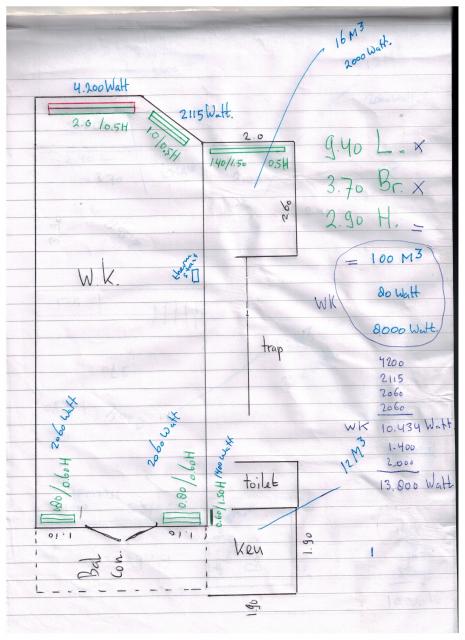 16 M³
2000 Watt.
4.200 Watt
2115 Watt.
2.0 /0.5H
1.0/0.5H
2.0
1.40/1.50 0.5H
2.60
9.40 L. x
3.70 Br. x
2.90 H. =
= 100 M³
WK 80 Watt
8000 Watt.
W.K.
trap
4200
2115
2060
2060
WK 10.434 Watt
1.400
2.000
13,800 Watt
12 M³
2060 Watt
2060 Watt
1400 Watt
0.80/0.60H
0.80/0.60H
0.60/1.50H
toilet
Keu
1.10
1.10
1.90
1.90
Bal
Con.